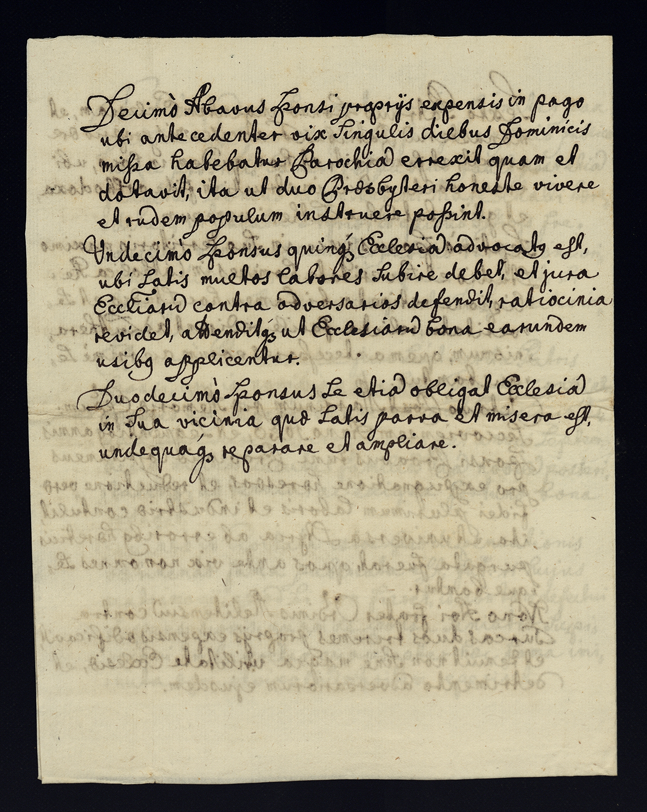 Decimò Abavus sponsi proprijs expensis in pago
ubi antecedenter vix singulis diebus Dominicis
missa habebatur Parochiā errexit quam et
dotavit, ita ut duo Præsbyteri honeste vivere
et rudem populum instruere possint.
Undecimò sponsus quinqȝ Ecclesiaȓ advocatꝯ est,
ubi satis multos labores subire debet, et jura
Eccliarū contra adversarios defendit, ratiocinia
revidet, attenditqȝ ut Ecclesiarū bona earundem
usibꝯ applicentur.
Duodecimò sponsus se etiā obligat Ecclesiā
in sua vicinia quæ satis parva et misera est,
undequaqȝ reparare et ampliare.